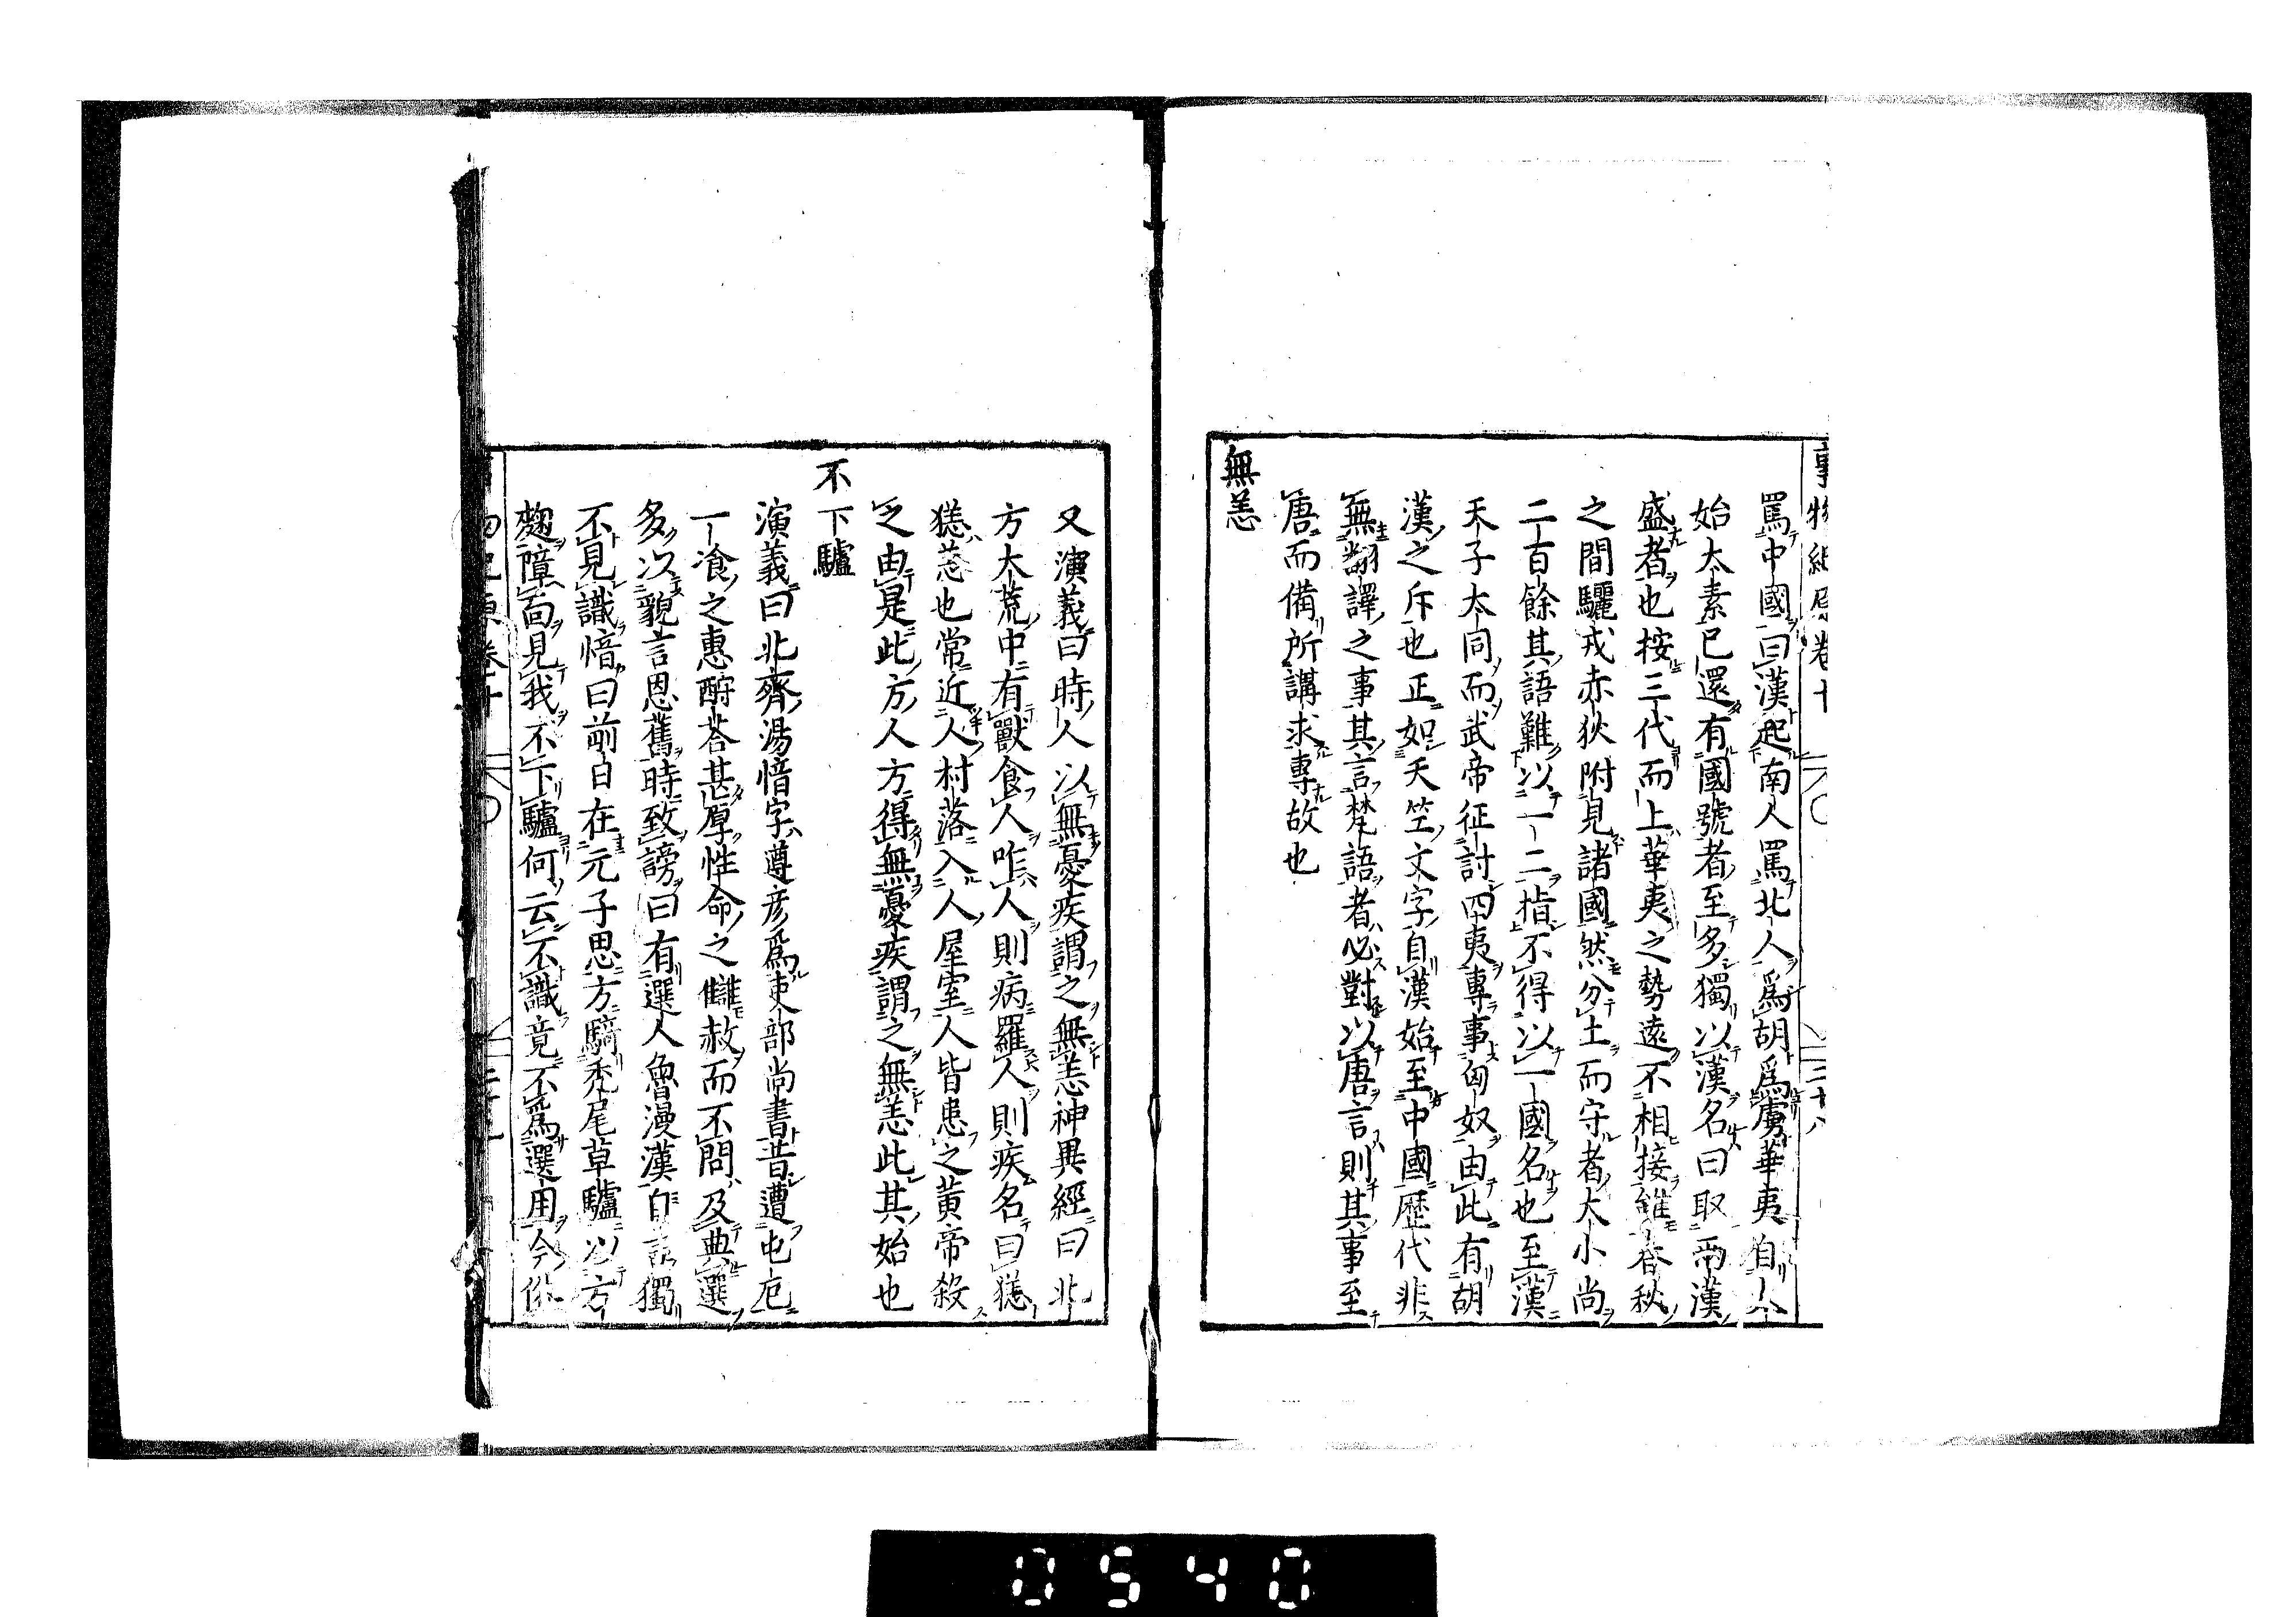 事物紀原卷十
罵中國曰漢起南人罵北人爲胡爲虜華夷自人
始太素已還有國號者至多獨以漢名曰取兩漢
盛者也按三代而上華夷之勢遠不相接雖春秋
之間驪戎赤狄附見諸國然分土而守者大小尚
二百餘其語難以一二指不得以一國名也至漢
天子太同而武帝征討四夷專事匈奴由此有胡
漢之斥也正如天竺文字自漢始至中國歷代非
無翻譯之事其言梵語者必對以唐言則其事至
唐而備所講求專故也
無恙
又演義曰時人以無憂疾謂之無恙神異經曰北
方大荒中有獸食人咋人則病羅人則疾名曰㺊
㺊恙也常近人村落入人屋室人皆患之黃帝殺
之由是北方人方得無憂疾謂之無恙此其始也
不下驢
演義曰北齊湯愔字遵彥爲吏部尚書昔遭屯厄
一飡之惠酧荅甚厚性命之讎赦而不問及典選
多以貌言恩舊時致謗曰有選人魯漫漢自言獨
不見識愔曰前日在元子思方騎禿尾草驢以方
麴障面見我不下驢何云不識竟不爲選用今俗